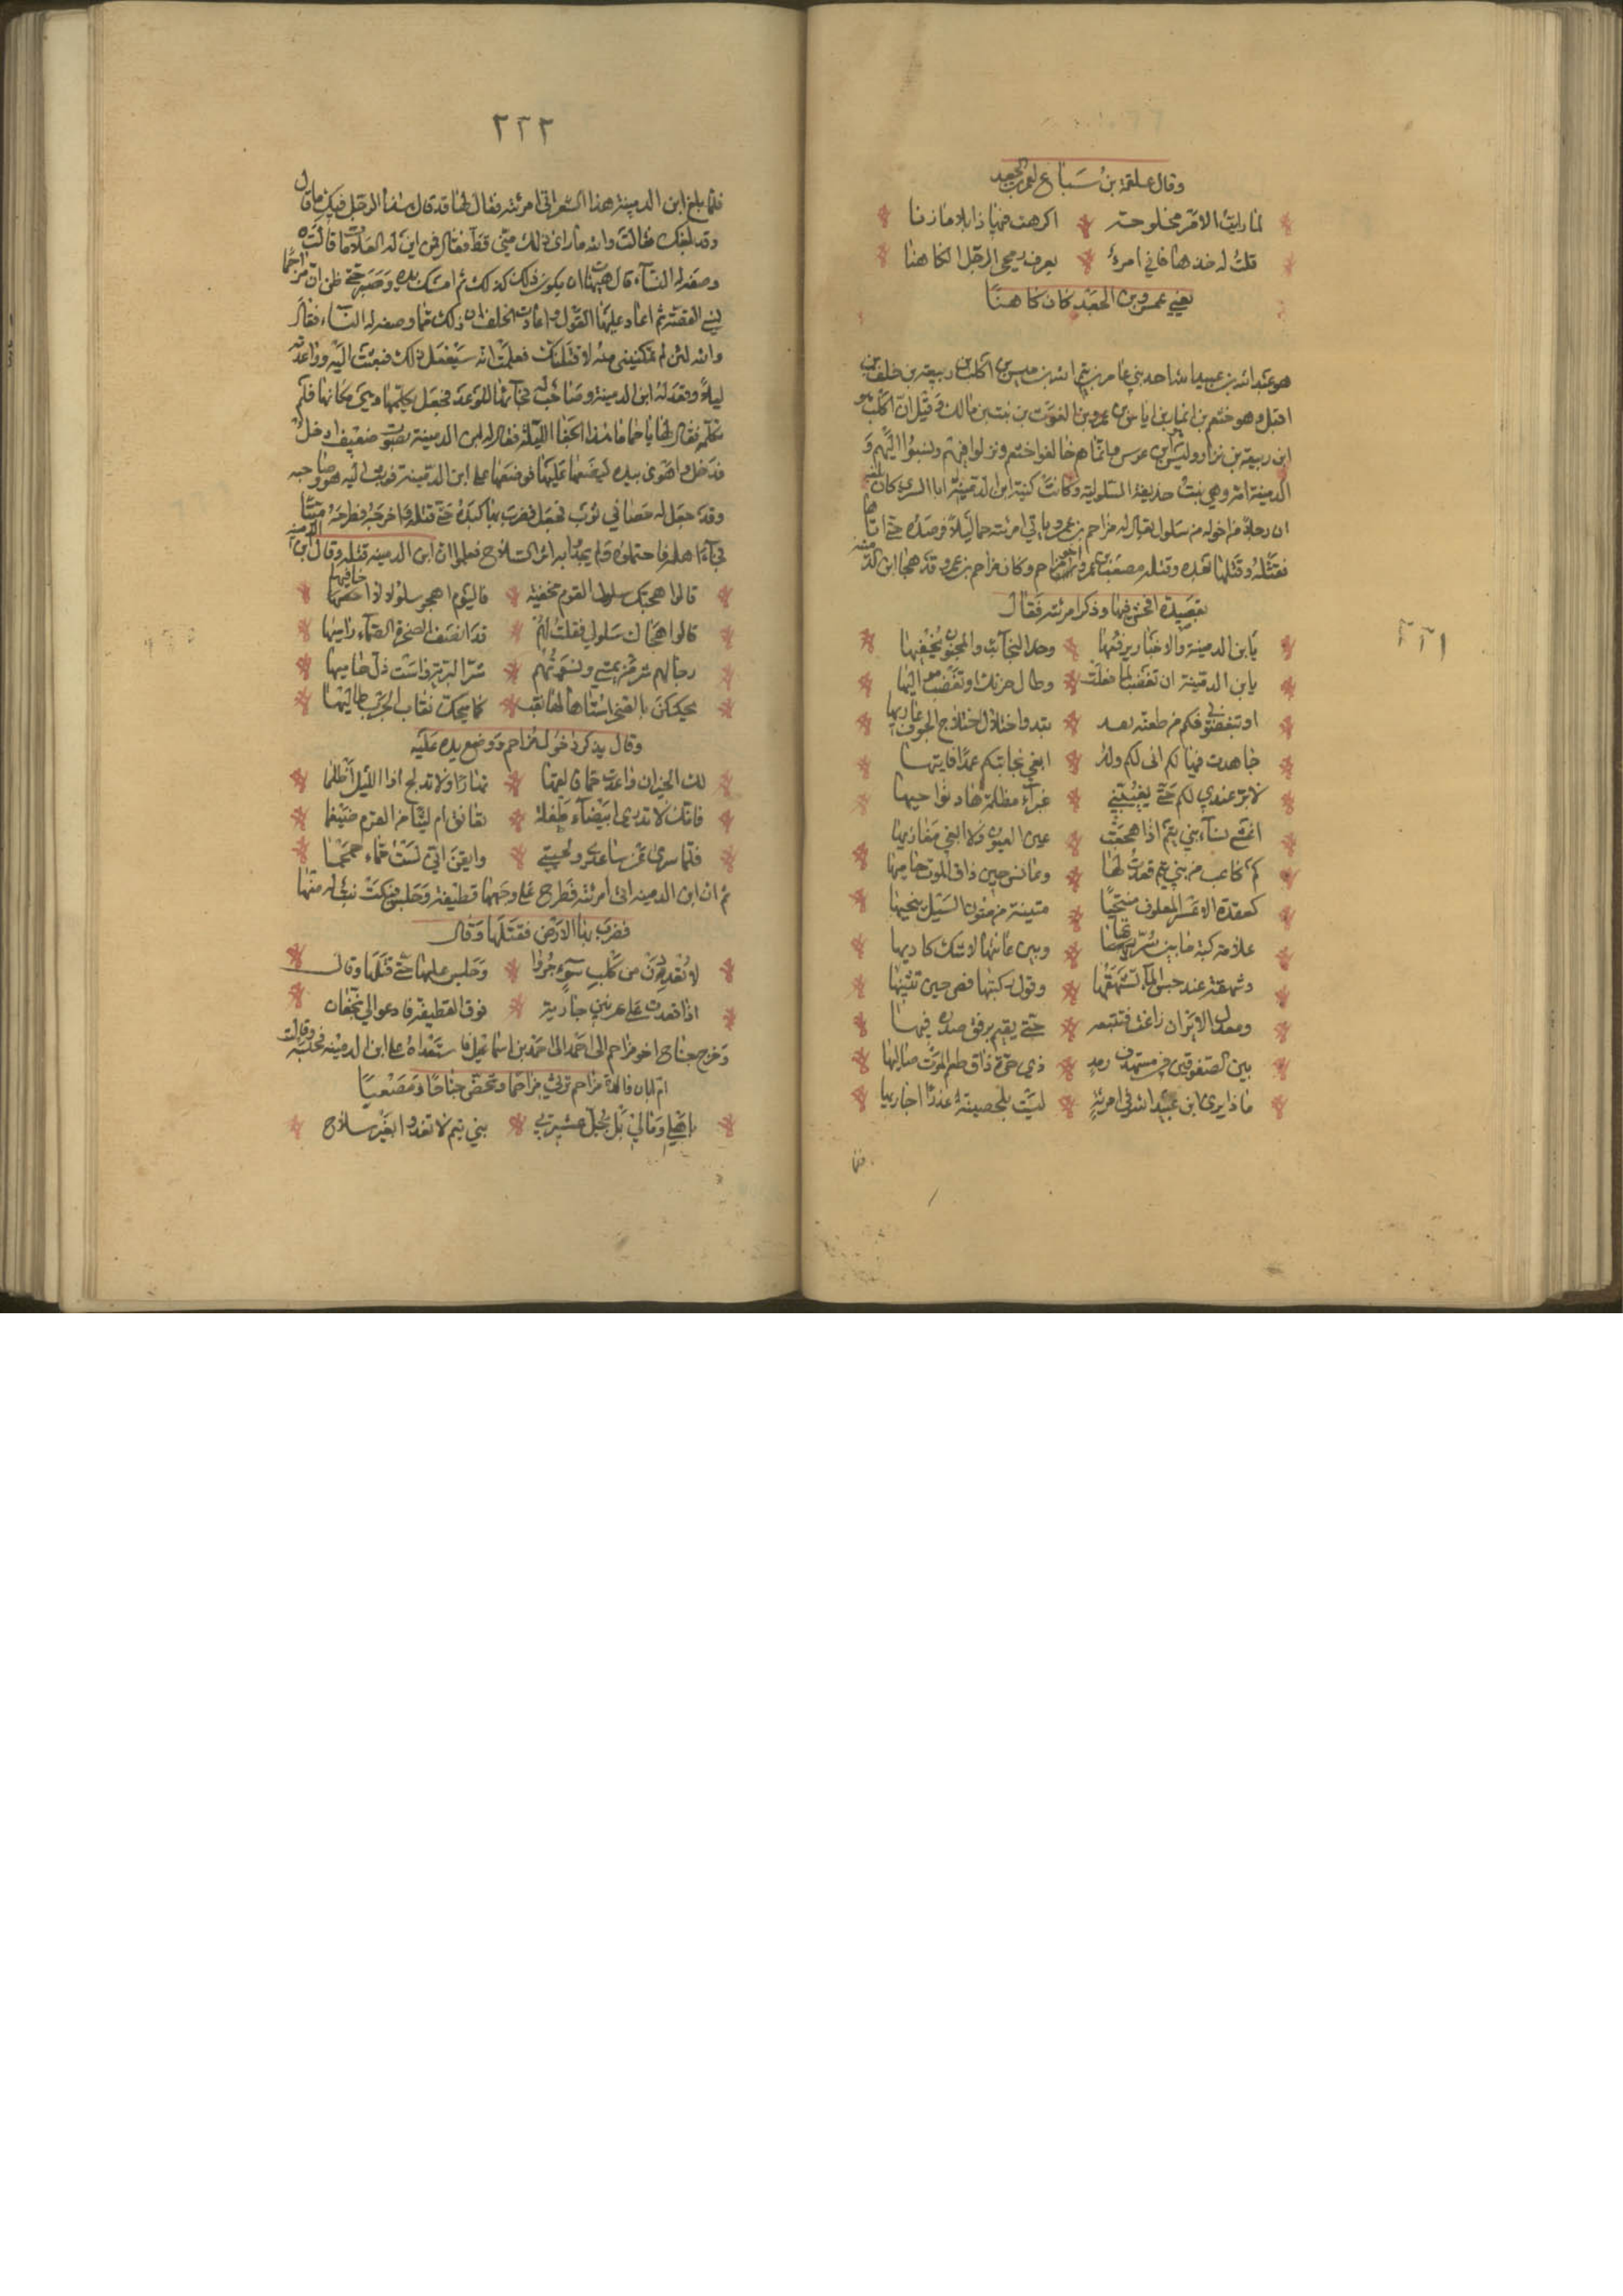 وقال علقمة بن سباع لعمرو بن الجعيد
لما رأيت الامر مخلوجة اكرهت فيها ذابلا مازنا
قلت له خذها فاني امرؤ يعرف رمحي الرجل الكاهنا
يعني عمرو بن الجعيد كان كاهنا
هو عبد الله بن عبيد الله احد بني عامر بن تيم الله بن اكلب بن ربيعة بن خلف بن
افتل وهو خثعم بن انمار بن اياس بن عمرو بن الغوث بن نبت بن مالك وقيل ان اكلب هو
ابن ربيعة بن نزار وانما هم حالفوا خثعم ونزلوا فيهم ونسبوا اليهم و
الدمينة امه وهي بنت حذيفة السلولية وكانت كنية ابن الدمينة ابا السري كان
ان رجلا من اخواله من سلول يقال له مزاحم بن عمرو ياتي امرئته ليلا فرصده حتى اتاها
فقتله وقتلها بعده وقتله مصعب بن عمرو اخو مزاحم وكان مزاحم بن عمرو قد هجا ابن الدمينة
بقصيدة افحش فيها وذكر امرئته فقال
يابن الدمينة والاخبار يرفعها وخد النجائب والمحقور يخفيها
يابن الدمينة ان تغضب لما فعلت وطال حزنك او تغضب مواليها
او تبغضوني فكم من طعنة نفذ يغذو خلال اختلاج الجوف غاديها
جاهدت فيها لكم اني لكم ولد ابغي معايبكم عمدا فايتها
لابرء عندي لكم حتى يغيبني غبراء مظلمة هار نواحيها
اغشى نساء بني تيم اذا هجعت عين العيون ولا ابغي مقاريها
كم كاعب من بني تيم قعدت لها وعانس حين ذاق الموت حاميها
كقعدة الاعسر العلوف منتحيا متينة من متون السيل ينحيها
علامة كية ما بين عانتها وبين سرتها لاشك كاويها
وشهقة عند حبس الماء تشهقها وقول ركبتها قض حين تثنيها
وتعدل الاير ان زاغت فتبعثه حتى يقيم برفق صدره فيها
بين الصفوقين في مستهدف رمد ذي حرة ذاق طعم الموت صاليها
ماذا يرى ابن عبيد الله في امرئة ليست بمحصنة عذرا اجاريها
فلما
٢٢١
٢٢٢
فلما بلغ ابن الدمينة هذا الشعر اتى امرئته فقال لها قد قال هذا الرجل فيك ما قال
وقد بلغك فقالت والله ما راى ذلك مني قط فقال فمن اين له العلامات قالت
وصفه له النساء قال هيهات ان يكون ذلك كذلك ثم امسك مدة وصبر حتى ظن ان مزاحما
نسي القصة ثم اعاد عليها القول واعادت الحلف ان ذلك مما وصفه له النساء فقال
والله لئن لم تمكنيني منه لاقتلنك فعلمت انه سيفعل ذلك فبعثت اليه وواعدته
ليلا وقعد له ابن الدمينة وصاحب له فجائها للوعد فجعل يكلمها وهي مكانها فلم
تكلمه فقال لها يا حماما ما هذا الجفا الليلة فقال له ابن الدمينة بصوت ضعيف ادخل
فدخل واهوى بيده ليضعها عليها فوضعها على ابن الدمينة فوثب اليه هو وصاحبه
وقد جعل له حصا في ثوب فجعل يضرب بها كبده حتى قتله واخرجه فطرحه ميتا
فجاء اهله فاحتملوه ولم يجدوا به اثر السلاح فعلموا ان ابن الدمينة قتله وقال ابن الدمينة
قالوا هجتك سلول القوم مخفية فاليوم اهجو سلولا لا اخافيها
قالوا هجاك سلولي فقلت لهم قد انصف الصخرة الصماء راميها
رجالهم شر من يمشي ونسوتهم شر البرية واست ذل حاميها
يحككن بالصخر استاها لها نقب كما يحك نقاب الجرب طاليها
وقال يذكر دخول مزاحم ووضع يده عليه
لك الخير ان واعدت حماء فالقها نهارا ولا تدلج اذا الليل اظلما
فانك لا تدري ابيضاء طفلة تعانق ام ليثا من القوم ضيغما
فلما سرى عن ساعدي ولحيتي وايقن اني لست حماء جمجما
ثم ان ابن الدمينة اتى امرئته فطرح على وجهها قطيفة وجلس فبكت بنت له منها
فضرب بها الارض فقتلها وقال
لا تغذون من كلب سوء جروا وجلس عليها حتى قتلها وقال
اذا قعدت على عرنين جارية فوق القطيفة فادعوا لي بحفار
وخرج جناح اخو مزاحم الى احمد بن اسماعيل فاستعداه على ابن الدمينة فحبسه وقالت
ام ابان والدة مزاحم ترثي مزاحما وتحض جناحا ومصعبا
باهلي ومالي بل بجل عشيرتي بني تيم لا تغدوا بغير سلاح